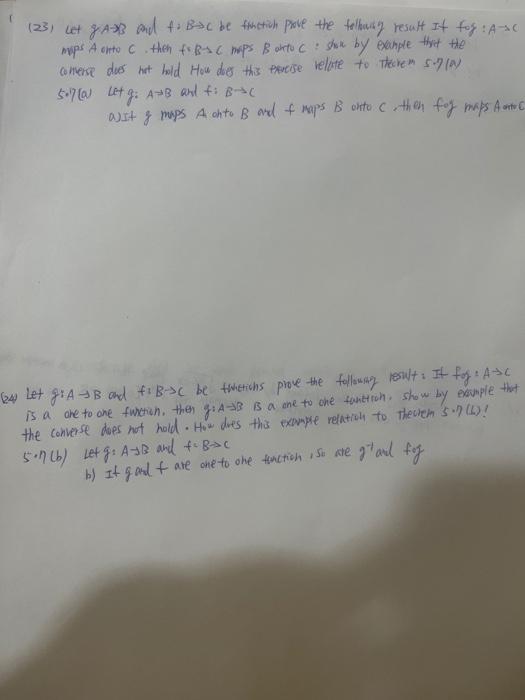 (23) Let g: A→B and f: B→C be function prove the following result If fog : A→C
maps A onto C. then f: B→C maps B onto C : show by example that the
converse does not hold How does this exercise relate to Theorem 5.7(a)
5.7(a) Let g: A→B and f: B→C
a) If g maps A onto B and f maps B onto C, then fog maps A onto C
(24) Let g: A→B and f: B→C be functions prove the following result: If fog: A→C
is a one to one function, then g: A→B is a one to one function. show by example that
the converse does not hold. How does this example relation to Theorem 5.7(b)!
5.7(b) Let g: A→B and f: B→C
b) If g and f are one to one function, so are g⁻¹ and fog